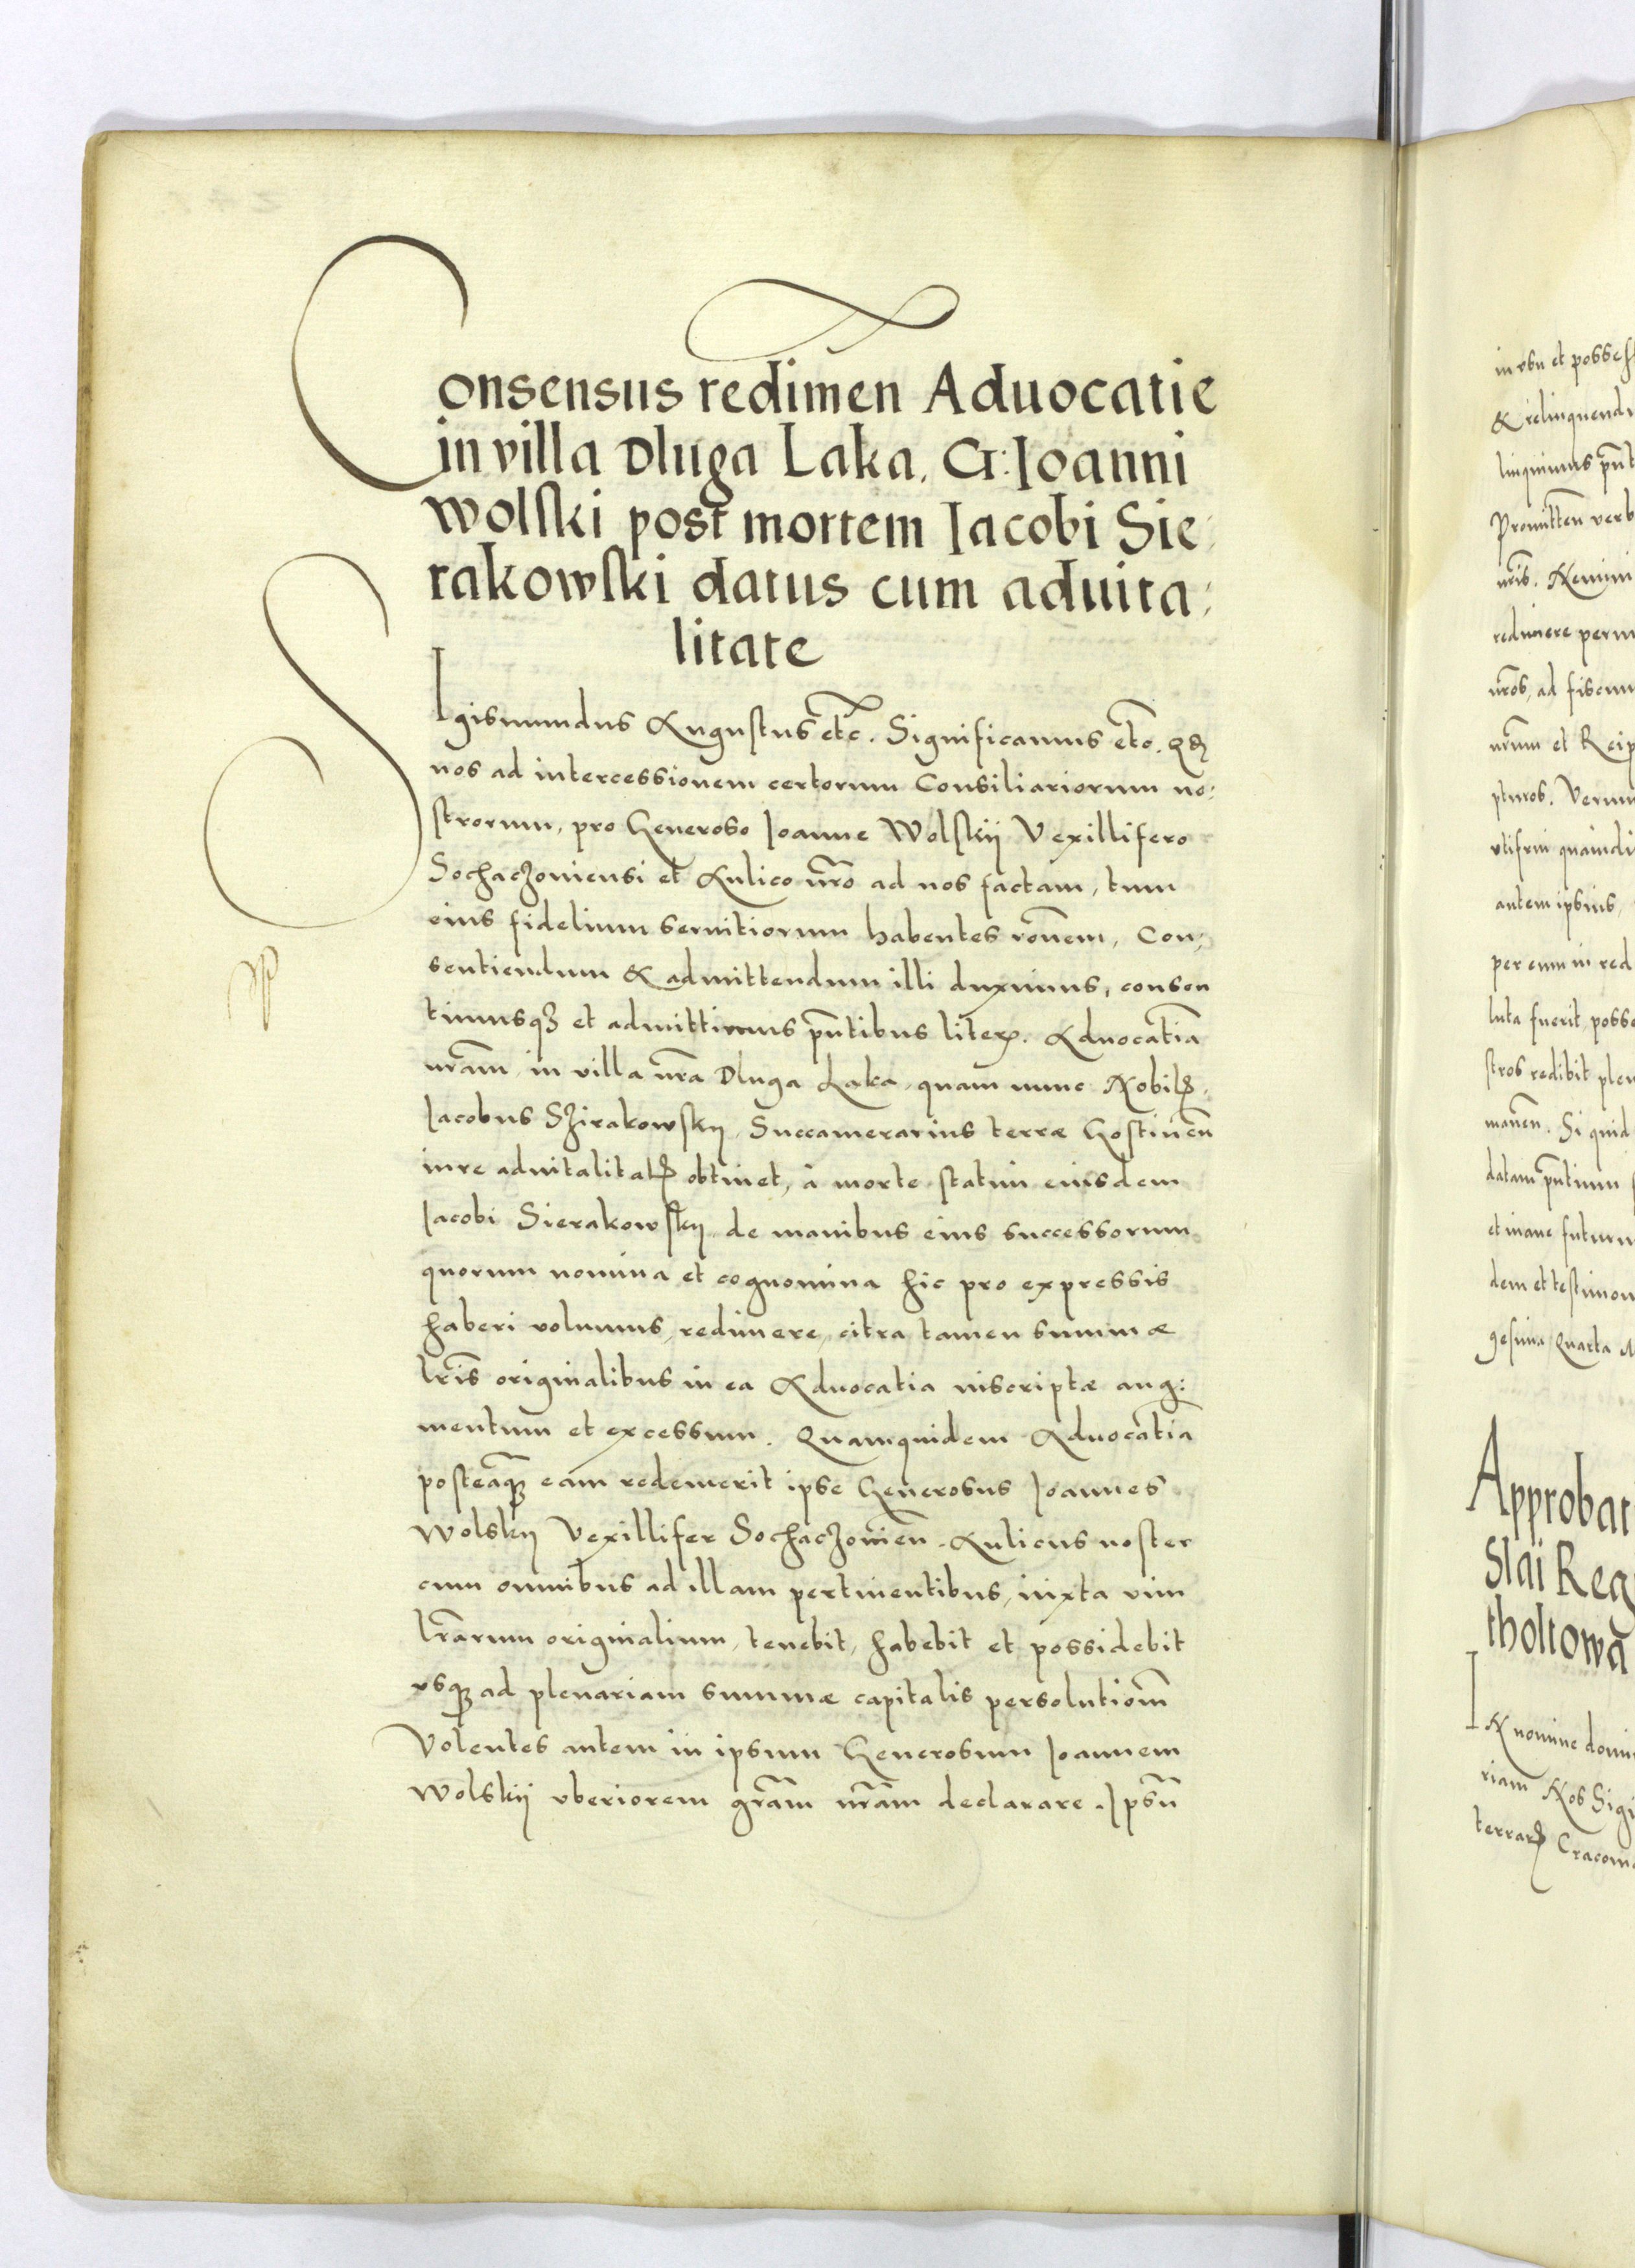 Consensus redimen Aduocatie
in villa Dluga Laka. G: Ioanni
wolski post mortem Iacobi Sie,
rakowski datus cum aduita,
litate
SIgismundus Augustus etc̃. Significamus etc̃. Qd
nos ad intercessionem certorum Consiliariorum no,
strorum, pro Generoso Ioanne Wolskij Vexillifero
Sochaczouiensi et Aulico nr̃o ad nos factam, tum
eius fidelium seruitiorum habentes rõnem, Con,
sentiendum & admittendum illi duximus, consen
timusqȝ et admittimus pñtibus literꝭ. Aduocatiã
nr̃am, in villa nr̃a Dluga Laka, quam nunc Nobilꝭ.
Iacobus Szirakowskij Succamerarius terræ Gostineñ
iure aduitalitatꝭ obtinet, à morte statim eiusdem
Iacobi Sierakowskij de manibus eius successorum
quorum nomina et cognomina hic pro expressis
haberi volumus, redimere, citra tamen summæ
lr̃is originalibus in ea Aduocatia inscriptæ aug:
mentum et excessum. Quamquidem Aduocatiã
posteaqȝ eam redemerit ipse Generosus Ioannes
Wolskij Vexillifer Sochaczouieñ. Aulicus noster
cum omnibus ad illam pertinentibus, iuxta vim
lr̃arum originalium, tenebit, habebit et possidebit
vsqȝ ad plenariam summæ capitalis persolutiom̃
Volentes autem in ipsum Generosum Ioannem
Wolskij vberiorem gr̃am nr̃am declarare. Ipsũ
in vsu et possess
& relinquend
linquimus pñt
Promitteñ verb
nr̃is. Nemini
redimere perm
nr̃os, ad fiscum
nr̃um et Reip
pturos. Verum
vtifrui quamdi
autem ipsius,
per eum in red
luta fuerit, posse
stros redibit plen
maneñ. Si quid
datam pñtium
et inane futuru
dem et testimon
gesima Quarta M
Approbat
slai Reg
tholtowa
IN nomine domi
riam Nos Sigi
terrarꝭ Cracouie